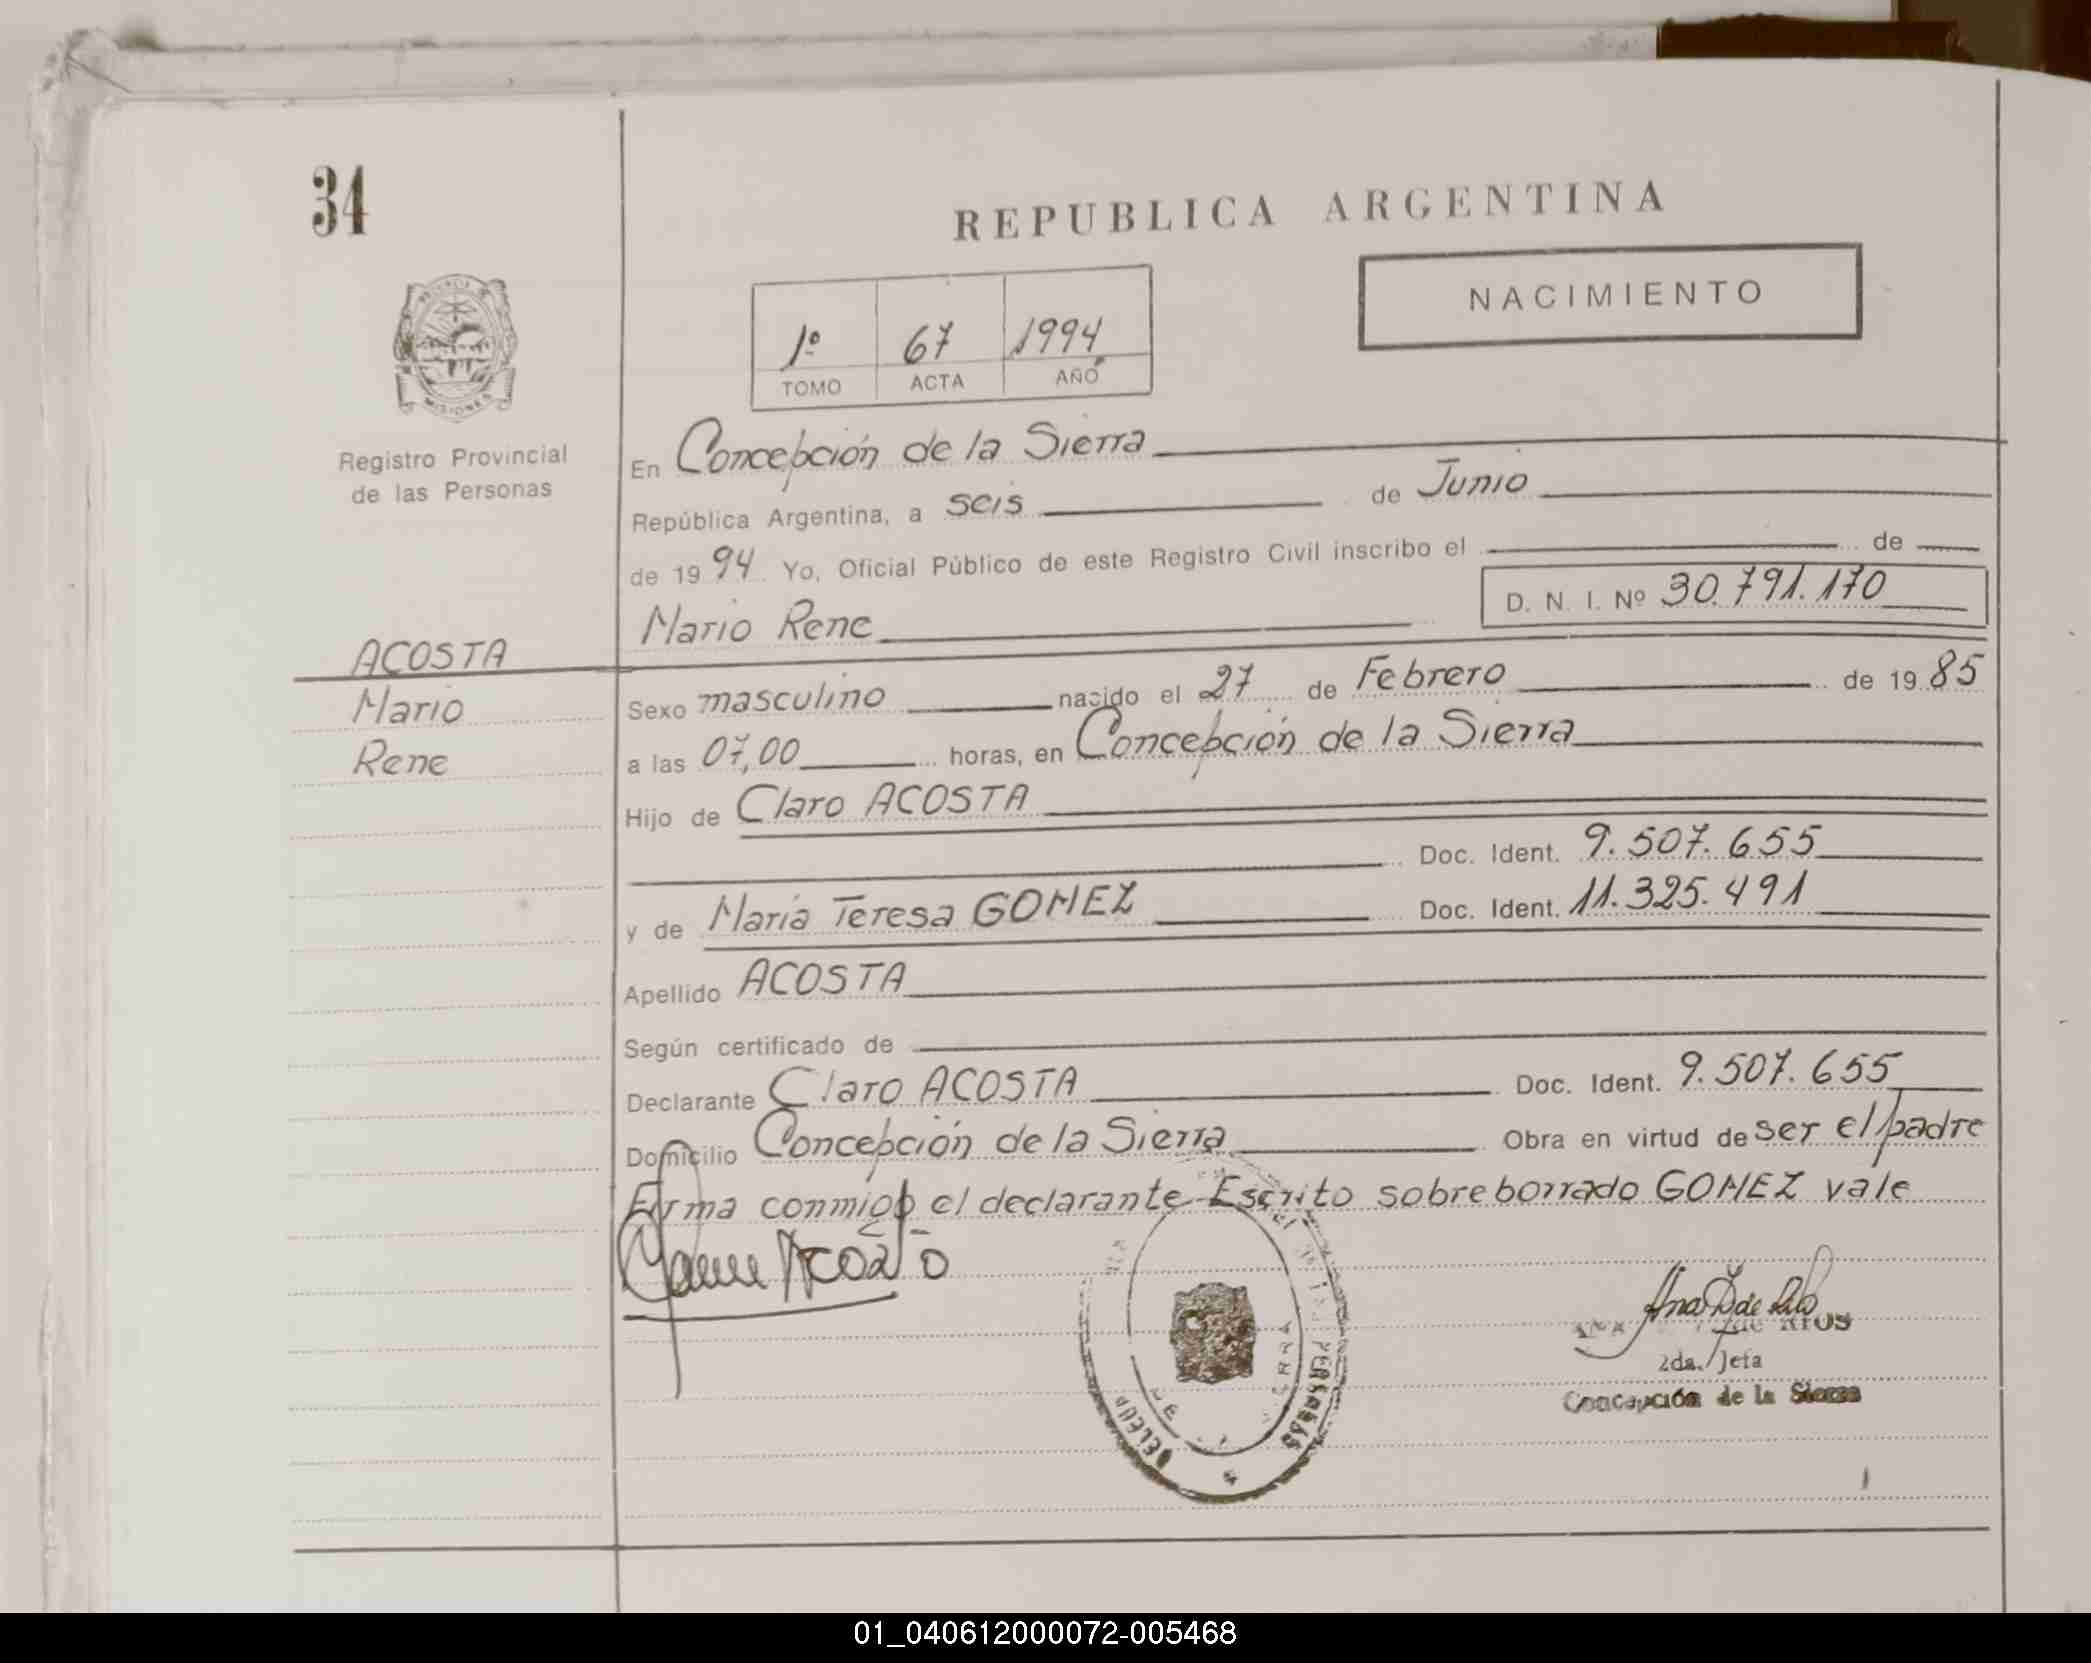 34
REPUBLICA ARGENTINA
NACIMIENTO
1º 67 1994
TOMO ACTA AÑO
MISIONES
Registro Provincial
de las Personas
En Concepción de la Sierra
República Argentina, a seis de Junio
de 1994 Yo, Oficial Público de este Registro Civil inscribo el de
D. N. I. Nº 30.791.170
Mario Rene
ACOSTA
Mario
Rene
Sexo masculino nacido el 27 de Febrero de 1985
a las 07,00 horas, en Concepción de la Sierra
Hijo de Claro ACOSTA
Doc. Ident. 9.507.655
y de María Teresa GOMEZ Doc. Ident. 11.325.491
Apellido ACOSTA
Según certificado de
Declarante Claro ACOSTA Doc. Ident. 9.507.655
Domicilio Concepción de la Sierra Obra en virtud de ser el padre
Firma conmigo el declarante Escrito sobreborrado GOMEZ vale
ANA de RIOS
2da. Jefa
Concepción de la Sierra
PERSONAS
01_040612000072-005468